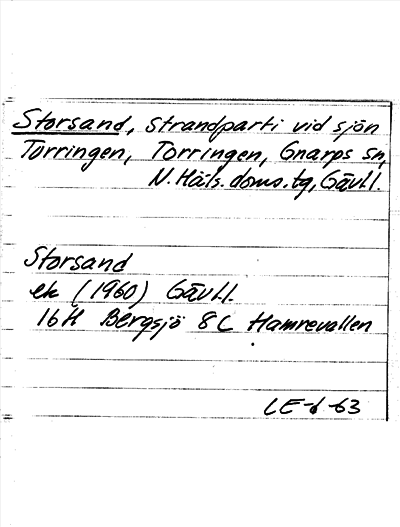 Storsand, strandparti vid sjön
Torringen, Torringen, Gnarps sn,
N. Häls. doms. tg, Gävl.l.
Storsand
ek (1960) Gävl.l.
16H Bergsjö 8C Hamrevallen
LE-d-63